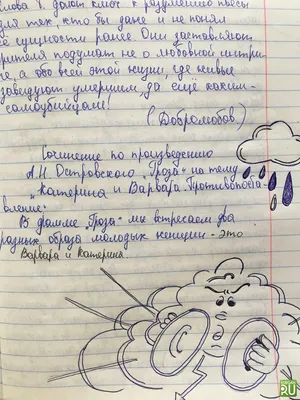 слова и дают ключ к разумению пьесы
для тех, кто бы даже и не понял
её сущности ранее. Они заставляют
зрителя подумать не о любовной интри-
ге, а обо всей этой жизни, где живые
завидуют умершим, да ещё каким -
самоубийцам!
(Добролюбов)
Сочинение по произведению
А.Н. Островского „Гроза" на тему
„Катерина и Варвара. Противопоста
вление"
В драмме „Гроза" мы встречаем два
разных образа молодых женщин - это
Варвара и Катерина.
RU